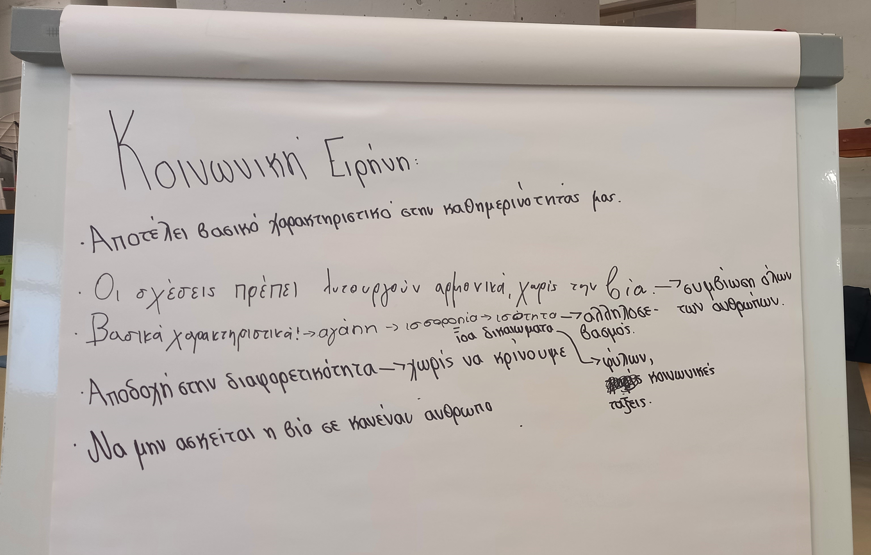 Κοινωνική Ειρήνη:
· Αποτέλει βασικό χαρακτηριστικό στην καθημερινότητάς μας.
· Οι σχέσεις πρέπει λιτουργούν αρμονικά, χωρίς την βία. → συμβίωση όλων
των ανθρώπων.
· Βασικά χαρακτηριστικά! → αγάπη → ισσοροπία → ισότητα → αλληλοσε-
βασμός.
ίσα δικαιώματα
→ φύλων,
κοινωνικές
τάξεις.
· Αποδοχή στην διαφορετικότητα → χωρίς να κρίνουμε
· Να μην ασκείται η βία σε κανέναν άνθρωπο